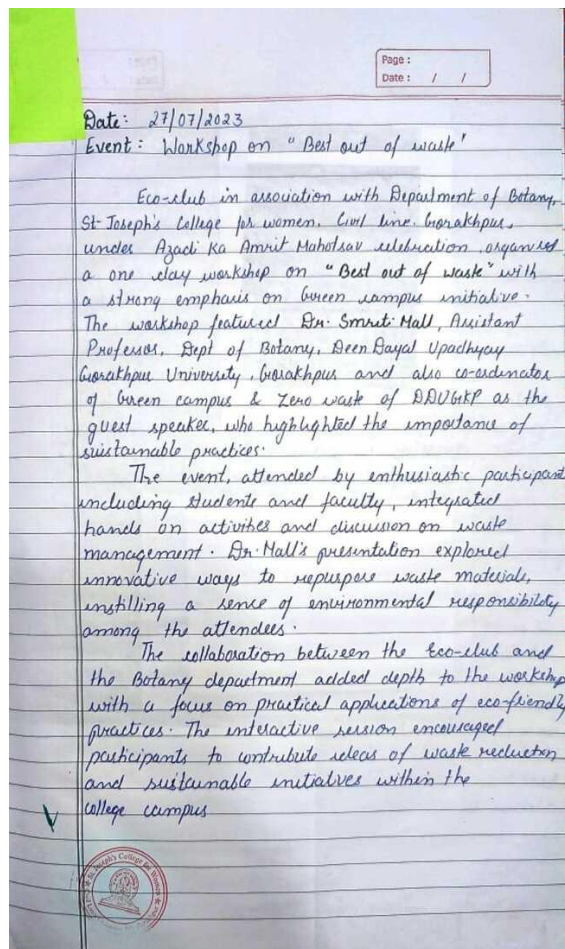 Page :
Date : / /
Date: 27/07/2023
Event: Workshop on "Best out of waste"
Eco-club in association with Department of Botany,
St- Joseph's College for women, Civil line, Gorakhpur,
under Azadi Ka Amrit Mahotsav celebration, organised
a one day workshop on "Best out of waste" with
a strong emphasis on Green campus initiative.
The workshop featured Dr. Smruti Mall, Assistant
Professor, Dept of Botany, Deen Dayal Upadhyay
Gorakhpur University, Gorakhpur and also co-ordinator
of Green campus & Zero waste of DDUGKP as the
guest speaker, who highlighted the importance of
sustainable practices.
The event, attended by enthusiastic participant
including students and faculty, integrated
hands on activities and discussion on waste
management. Dr. Mall's presentation explored
innovative ways to repurpose waste materials,
instilling a sence of environmental responsibility
among the attendees.
The collaboration between the Eco-club and
the Botany department added depth to the workshop
with a focus on practical applications of eco-friendly
practices. The interactive session encouraged
participants to contribute ideas of waste reduction
and sustainable initiatives within the
college campus
St. Joseph's College for Women